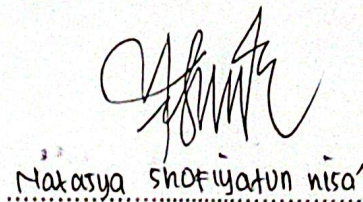 Natasya Shofiyatun nisa'